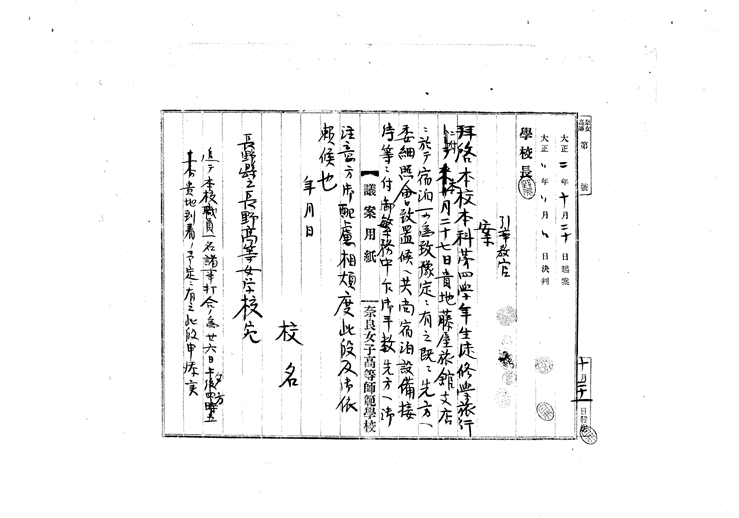 奈女高師 第 號
大正二年十月二十日起案
大正 年 月 日決判
學校長
十月二十一日發送
引率教官
案
拜啓本校本科第四學年生徒修學旅行
本月二十七日貴地藤屋旅館支店
ニ於テ宿泊 為致豫定ニ有之既ニ先方ヘ
委細照會致置候ヘ共尚宿泊設備接
待等ニ付御繁務中乍御手數先方ヘ御
議案用紙
奈良女子高等師範學校
注意方御配慮相煩度此段及御依
賴候也
年月日
校名
長野縣立長野高等女學校宛
追テ本校職員一名諸事打合ノ為廿六日午後四時 夕方
貴地到着ノ予定ニ有之此段申添候